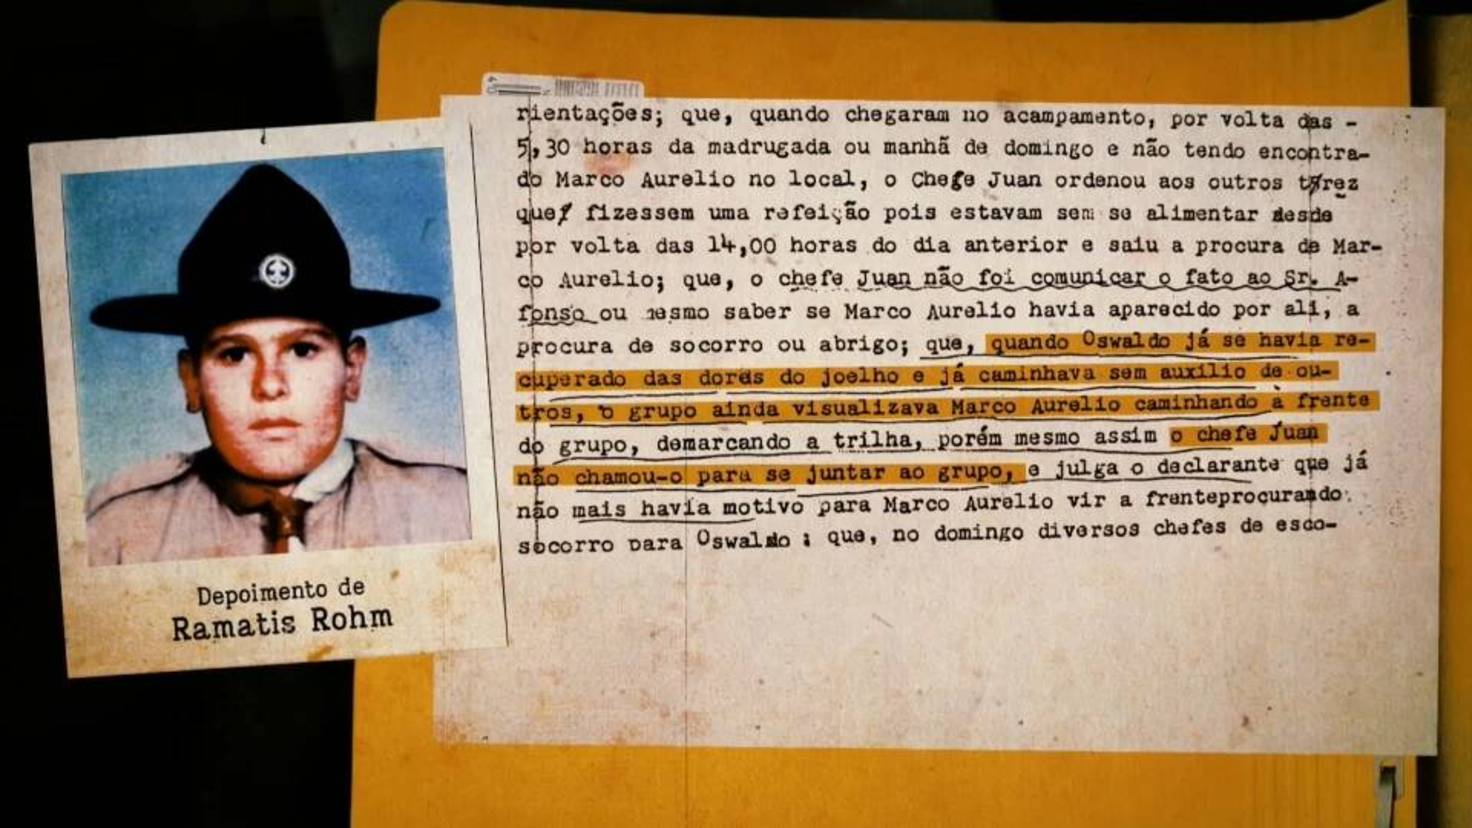 Depoimento de
Ramatis Rohm
rientações; que, quando chegaram no acampamento, por volta das -
5,30 horas da madrugada ou manhã de domingo e não tendo encontra-
do Marco Aurelio no local, o Chefe Juan ordenou aos outros trez
que fizessem uma refeição pois estavam sem se alimentar desde
por volta das 14,00 horas do dia anterior e saiu a procura de Mar-
co Aurelio; que, o chefe Juan não foi comunicar o fato ao Sr. A-
fonso ou mesmo saber se Marco Aurelio havia aparecido por ali, a
procura de socorro ou abrigo; que, quando Oswaldo já se havia re-
cuperado das dores do joelho e já caminhava sem auxilio de ou-
tros, o grupo ainda visualizava Marco Aurelio caminhando à frente
do grupo, demarcando a trilha, porém mesmo assim o chefe Juan
não chamou-o para se juntar ao grupo, e julga o declarante que já
não mais havia motivo para Marco Aurelio vir a frenteprocurando
socorro para Oswaldo; que, no domingo diversos chefes de esco-